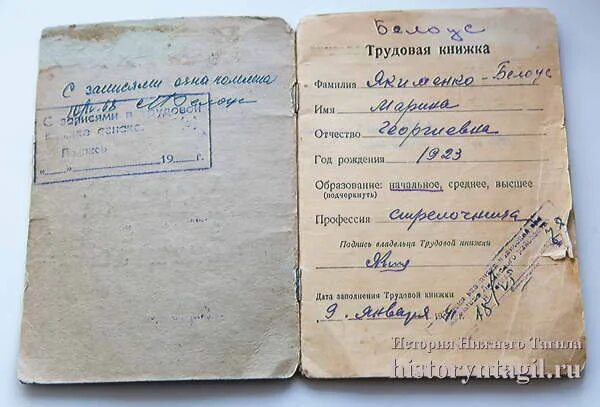 С записями ознакомлена
С записями в трудовой
книжке ознаком.
Подпись
"___"___________19___г.
Белоус
Трудовая книжка
Фамилия Якименко-Белоус
Имя Марина
Отчество Георгиевна
Год рождения 1923
Образование: начальное, среднее, высшее
(подчеркнуть)
Профессия стрелочница
Подпись владельца Трудовой книжки
Дата заполнения Трудовой книжки
9. января
История Нижнего Тагила
historyntagil.ru